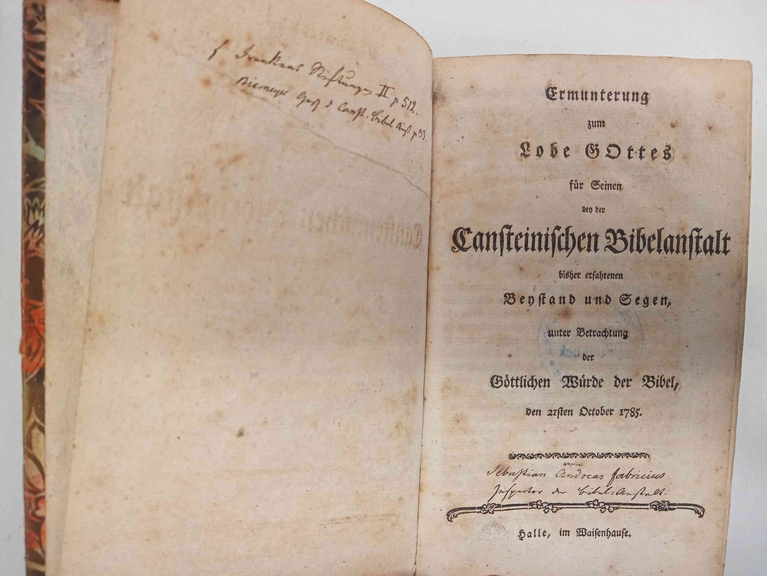 Franckens Stiftungen II p 512.
Niemeyer Gesch d Canst. Bibel Anst p
Ermunterung
zum
Lobe GOttes
für Seinen
bey der
Cansteinischen Bibelanstalt
bisher erfahrenen
Beystand und Segen,
unter Betrachtung
der
Göttlichen Würde der Bibel,
den 21sten October 1785.
Sebastian Andreas Fabricius
Inspector der Bibel-Anstalt.
Halle, im Waisenhause.